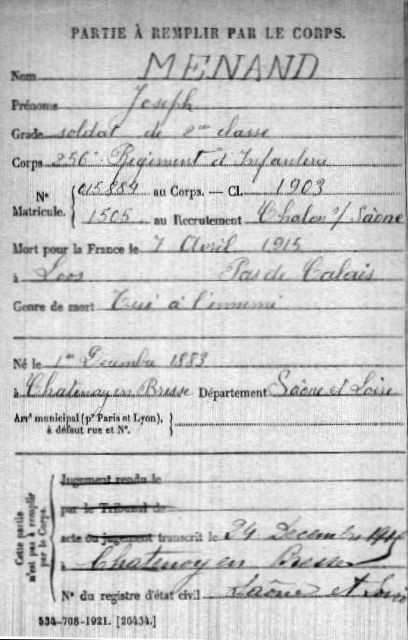 PARTIE À REMPLIR PAR LE CORPS.
Nom MENAND
Prénoms Joseph
Grade soldat de 2me classe
Corps 256e Régiment d'Infanterie
Nº Matricule. 015884 au Corps. — Cl. 1903
1505 au Recrutement Chalon s/ Saône
Mort pour la France le 7 Avril 1915
à Loos Pas de Calais
Genre de mort Tué à l'ennemi
Né le 1er Décembre 1883
à Chatenoy en Bresse Département Saône et Loire
Arrt municipal (pr Paris et Lyon), à défaut rue et Nº.
Cette partie n'est pas à remplir par le Corps.
Jugement rendu le
par le Tribunal de
acte ou jugement transcrit le 24 Décembre
à Chatenoy en Bresse
Nº du registre d'état civil Saône et Loire
534-708-1921. [26434.]